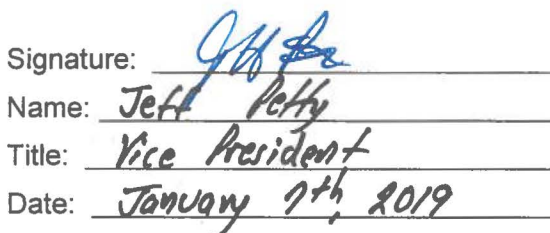 Signature:
Name: Jeff Petty
Title: Vice President
Date: January 7th, 2019